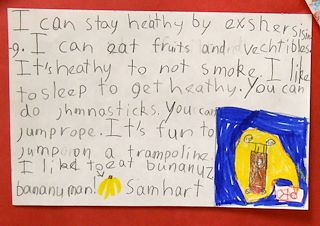 I can stay heathy by exshersisin
-g. I can eat fruits and vechtibles.
It's heathy to not smoke. I like
to sleep to get heathy. You can
do jhmnasticks. You can
jumprope. It's fun to
jump on a trampoline.
I like to eat bununuz
bununuman! Samhart